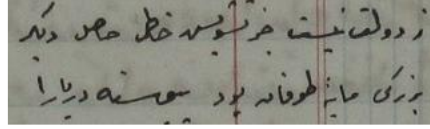 ز دولت نیست جز تشویش خاطر حاصل دیگر
بزرگی مایهٔ طوفان بود پیوسته دریا را